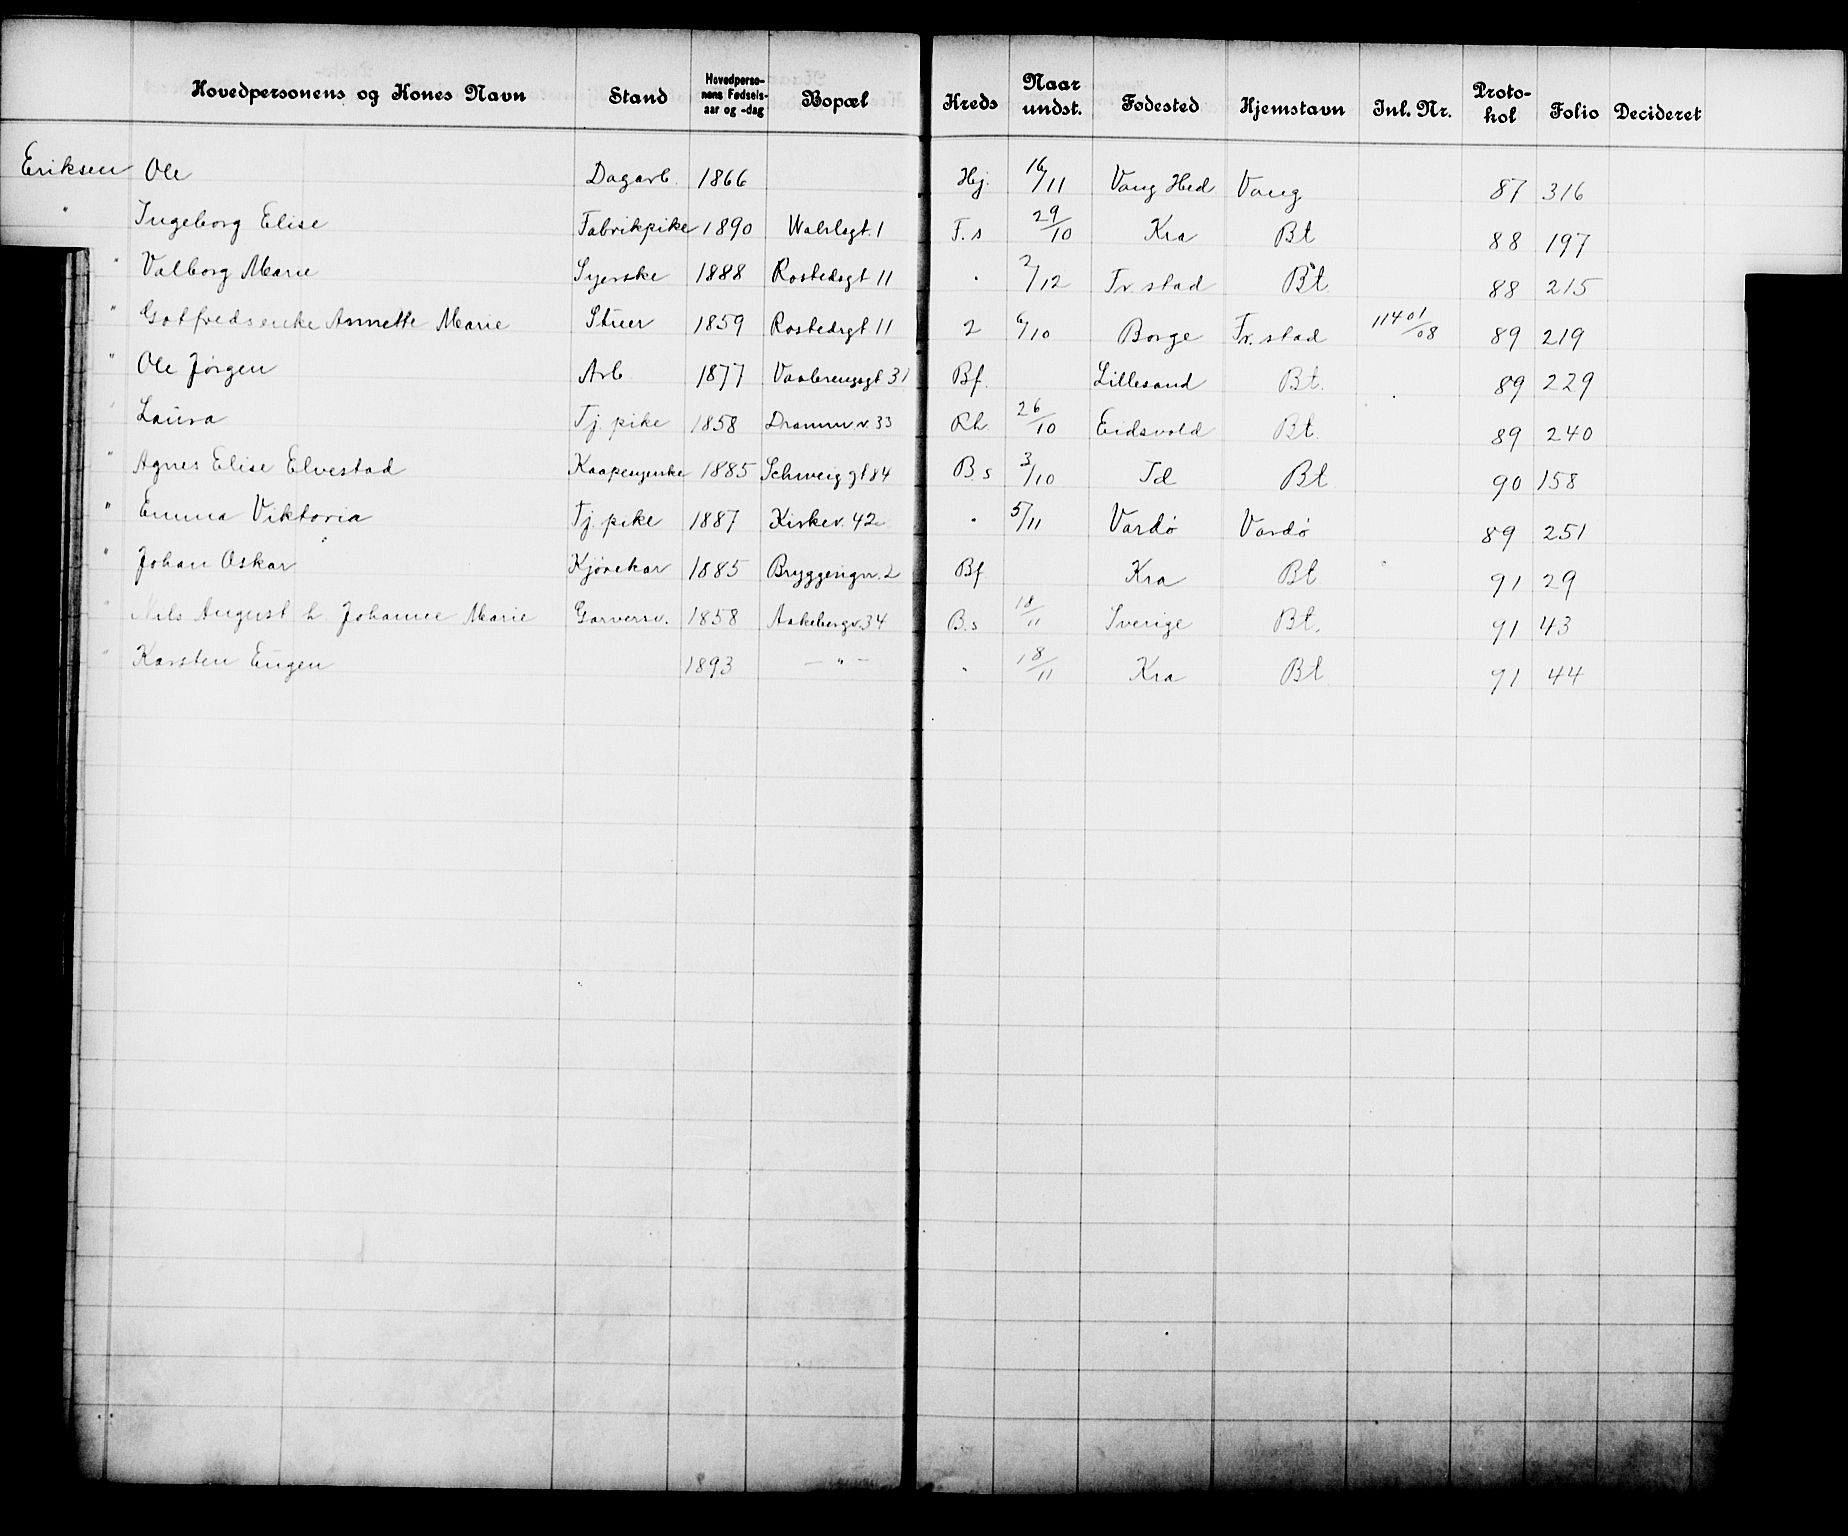 Hovedpersonens og Kones Navn Stand Hovedpersonens Fødselsaar og -dag Bopæl Kreds Naar undst. Fødested Hjemstavn Inl. Nr. Protokol Folio Decideret
Eriksen Ole Dagarb. 1866 Hj. 16/11 Vang Hed Vang 87 316
" Ingeborg Elise Fabrikpike 1890 Wahlsgt. 1 F.s 29/10 Kra Bt 88 197
" Valborg Marie Syerske 1888 Rostedsgt 11 " 2/12 Fr. stad Bt 88 215
" Gotfredsenke Annette Marie Stuer 1859 Rostedsgt 11 2 6/10 Borge Fr. stad 11401/08 89 219
" Ole Jørgen Arb 1877 Vaalerengsgt 31 Bf. Lillesand Bt. 89 229
" Laura Tj. pike 1858 Dramm. v. 33 Rh 26/10 Eidsvold Bt. 89 240
" Agnes Elise Elvestad Kaapesyerske 1885 Schweig gt 84 B s 3/10 Td Bt 90 158
" Emma Viktoria Tj. pike 1887 Kirkev. 42 " 5/11 Vardø Vardø 89 251
" Johan Oskar Kjørekar 1885 Bryggerign. 2 Bf Kra Bt 91 29
" Nils August h. Johanne Marie Garversv. 1858 Aakebergv. 34 B.s 18/11 Sverige Bt. 91 43
" Karsten Eugen 1893 — " — " 18/11 Kra Bt 91 44